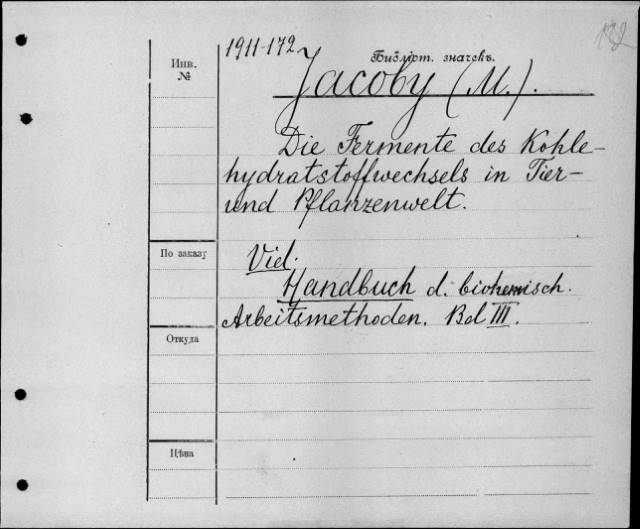 172
1911-172
Инв.
№
Библіот. значекъ.
Jacoby (M.).
Die Fermente des Kohle-
hydratstoffwechsels in Tier-
und Pflanzenwelt.
По заказу
Vid.
Handbuch d. biochemisch.
Arbeitsmethoden. Bd III.
Откуда
Цѣна